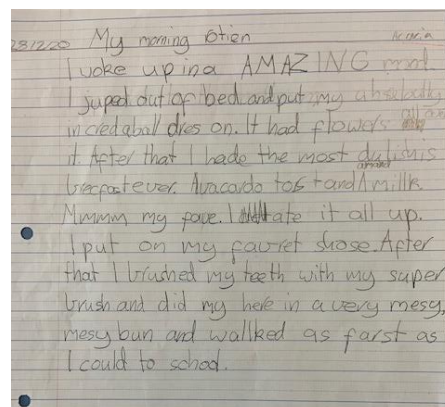 23/2/20 My morning rotien
I woke up in a AMAZING mood.
I juped out of bed and put my abseloutly
incredaball dres on. It had flowers all on
it. After that I hade the most
brecfast ever. Avacardo tost and A millk.
Mmmm my fave. I ate it all up.
I put on my favret shose. After
that I brushed my teeth with my super
brush and did my here in a very mesy,
mesy bun and wallked as farst as
I could to school.